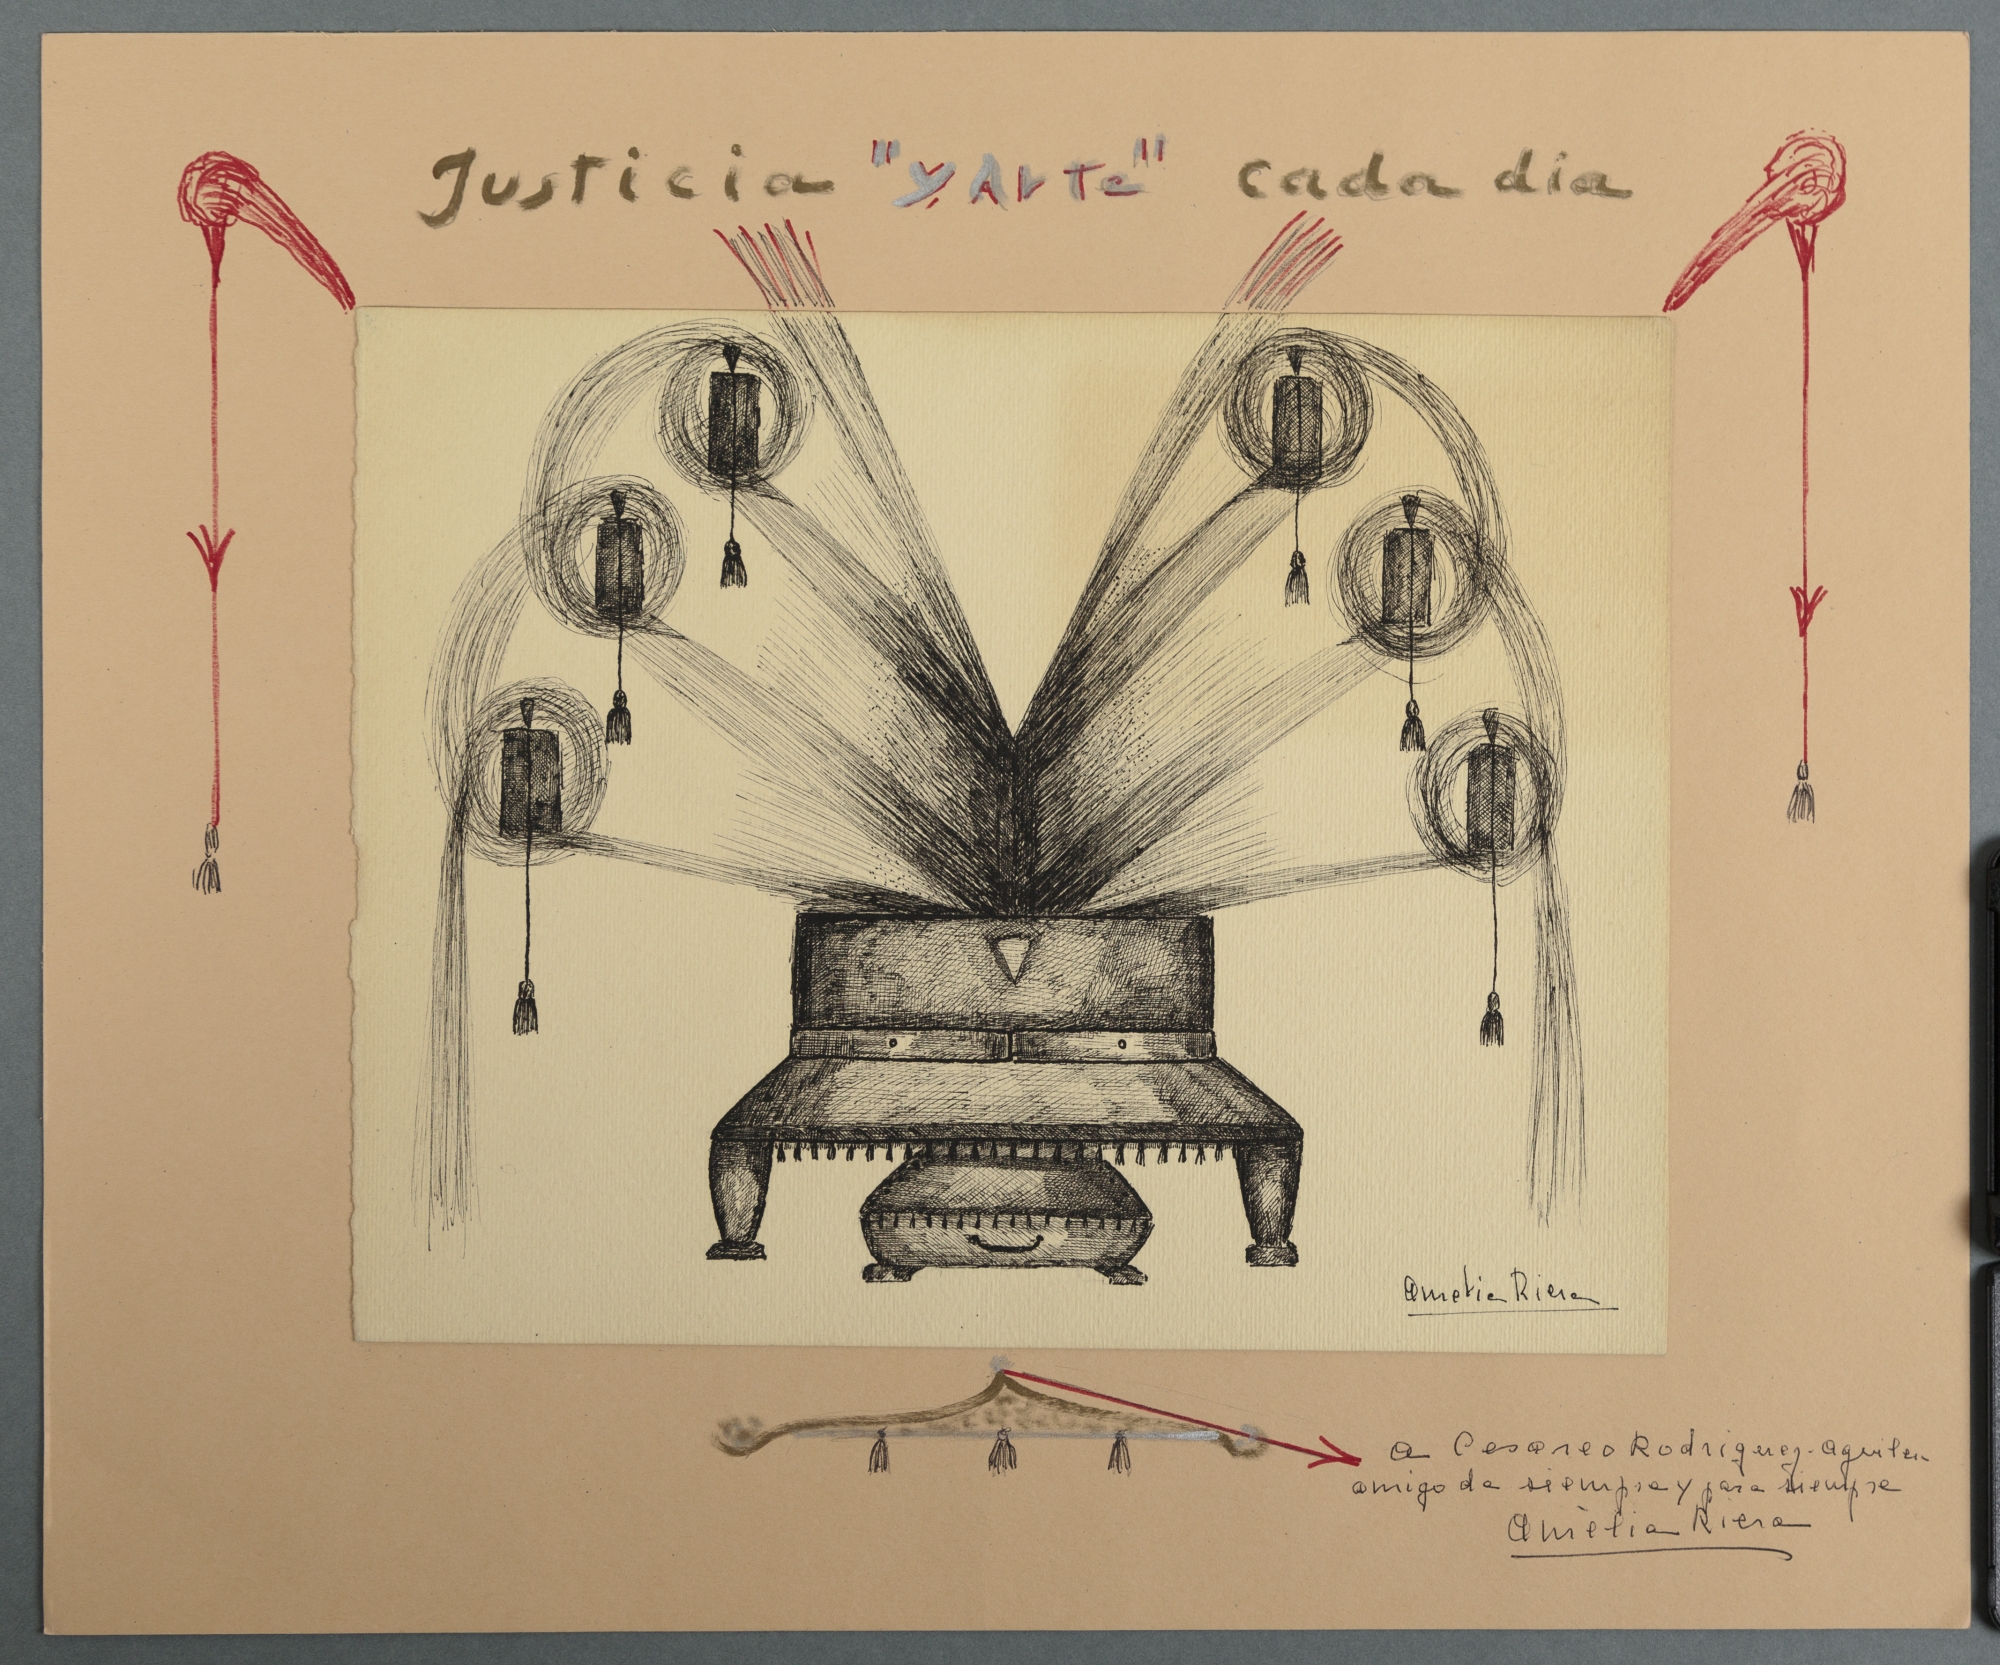 Justicia "y Arte" cada dia
Amelia Riera
a Cesareo Rodriguez-Aguilera
amigo de siempre y para siempre
Amèlia Riera